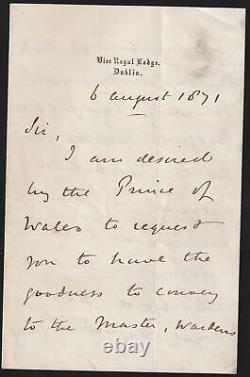 Vice Regal Lodge,
Dublin.
6 August 1871
Sir,
I am desired
by the Prince of
Wales to request
you to have the
goodness to convey
to the Master, Wardens